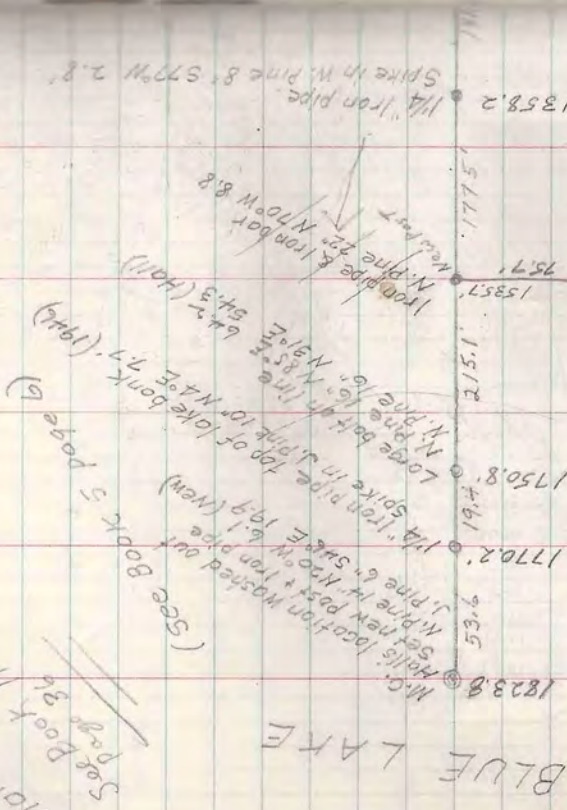 BLUE LAKE
See Book
page 36
1823.8
M.C.
Hall's location washed out
Set new post & Iron pipe
N. Pine 14" N20°W 6.1
J. Pine 6" S46°E 19.9 (New)
(See Book 5 page 6)
53.6
1770.2'
1¼" Iron pipe top of lake bank
Spike in J. Pine 10" N4°E 7.7' (1946)
19.4
1750.8'
Large bolt on line
N. Pine 16" N85°E 64.2
N. Pine 16" N51°E 54.3 (Hall)
215.1'
1535.7'
75.7'
New Post
Iron pipe & Iron bar
N. Pine 22" N70°W 8.8
177.5'
1358.2
1¼" Iron pipe.
Spike in W. Pine 8" S77°W 2.8'